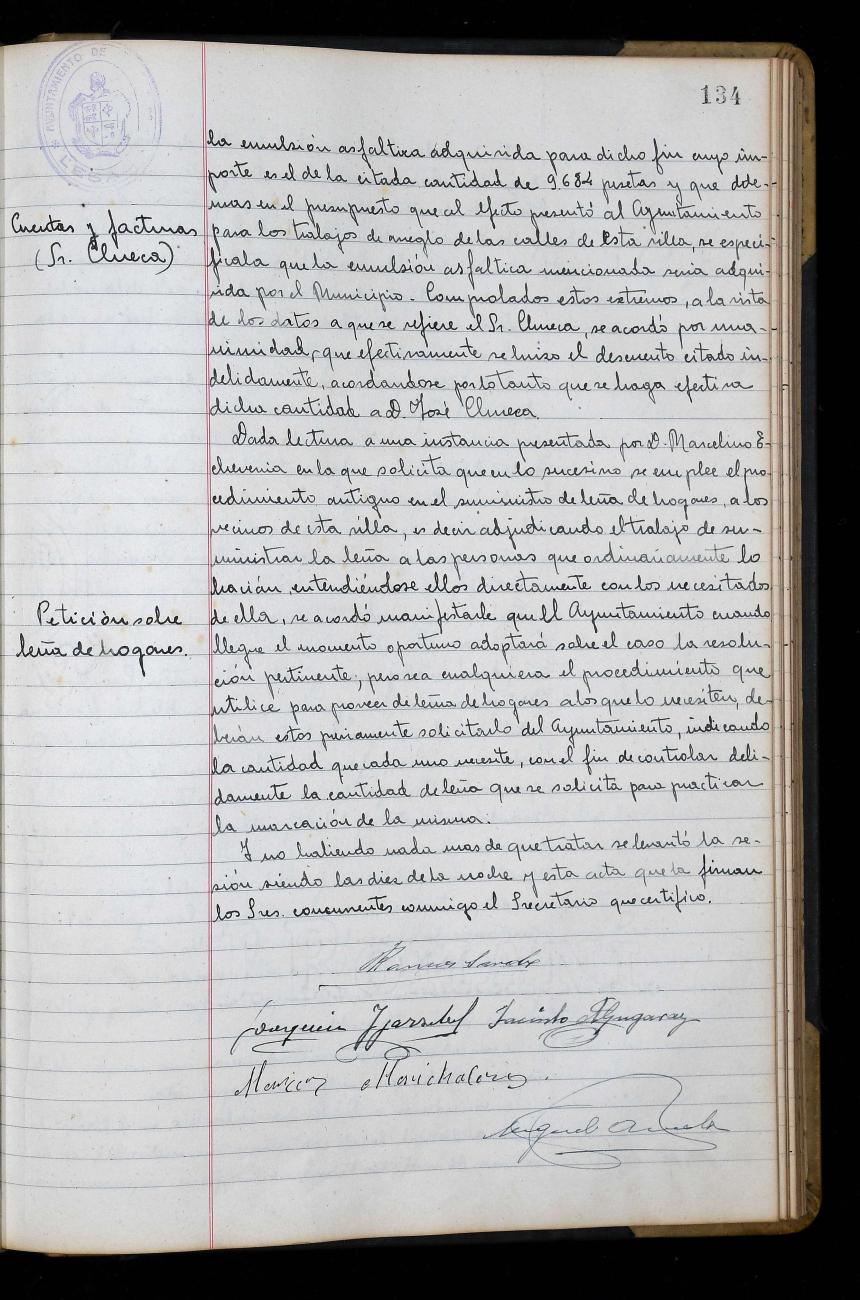 134
AYUNTAMIENTO DE
LESACA
la emulsión asfaltica adquirida para dicho fin cuyo im-
porte es el de la citada cantidad de 9684 pesetas y que ade-
mas en el presupuesto que al efecto presentó al Ayuntamiento
Cuentas y facturas
para los trabajos de arreglo de las calles de Esta villa, se especi-
(Sr. Chueca)
ficaba que la emulsión asfaltica mencionada seria adqui-
rida por el Municipio. Comprobados estos extremos, a la vista
de los datos a que se refiere el Sr. Chueca, se acordó por una-
nimidad, que efectivamente se hizo el descuento citado in-
debidamente, acordandose por lo tanto que se haga efectiva
dicha cantidad a D. José Chueca.
Dada lectura a una instancia presentada por D. Marcelino E-
cheverria en la que solicita que en lo sucesivo se emplee el pro-
cedimiento antiguo en el suministro de leña de hogares, a los
vecinos de esta villa, es decir adjudicando el trabajo de su-
ministrar la leña a las personas que ordinariamente lo
hacián, entendiéndose ellos directamente con los necesitados
Petición sobre
de ella, se acordó manifestarle que El Ayuntamiento cuando
leña de hogares.
llegue el momento oportuno adoptará sobre el caso la resolu-
ción pertinente; pero sea cualquiera el procedimiento que
utilice para proveer de leña de hogares a los que lo necesiten, de-
berán estos previamente solicitarlo del Ayuntamiento, indicando
la cantidad que cada uno necesite, con el fin de controlar debi-
damente la cantidad de leña que se solicita para practicar
la marcación de la misma.
Y no habiendo nada mas de que tratar se levantó la se-
sión siendo las diez de la noche y esta acta que la firman
los Sres. concurrentes conmigo el Secretario que certifico.
Joaquin Jacinto
Marichalar
Miguel